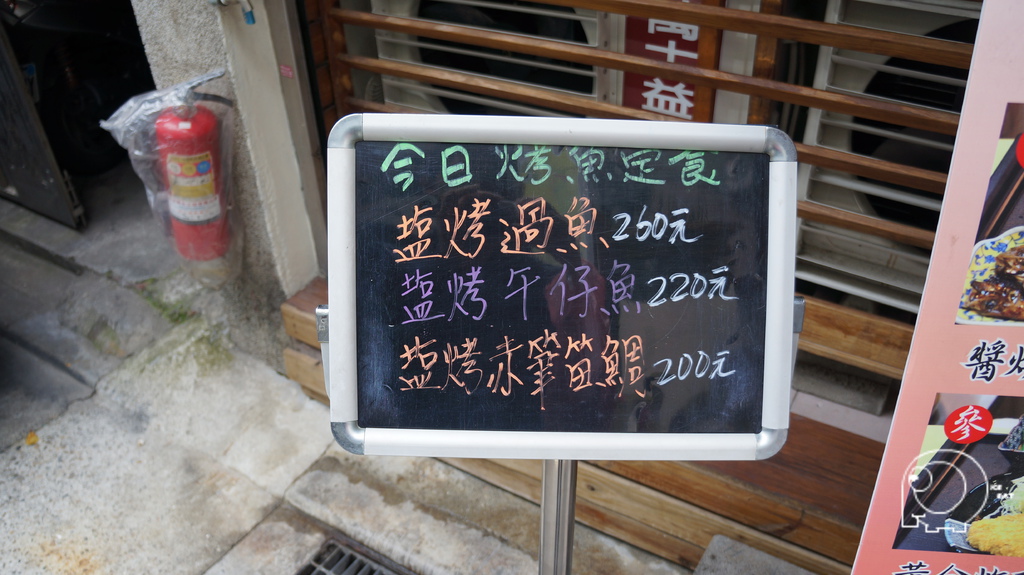 今日烤魚定食
塩烤過魚260元
塩烤午仔魚220元
塩烤赤筆笛鯛200元
益
醬燒
參